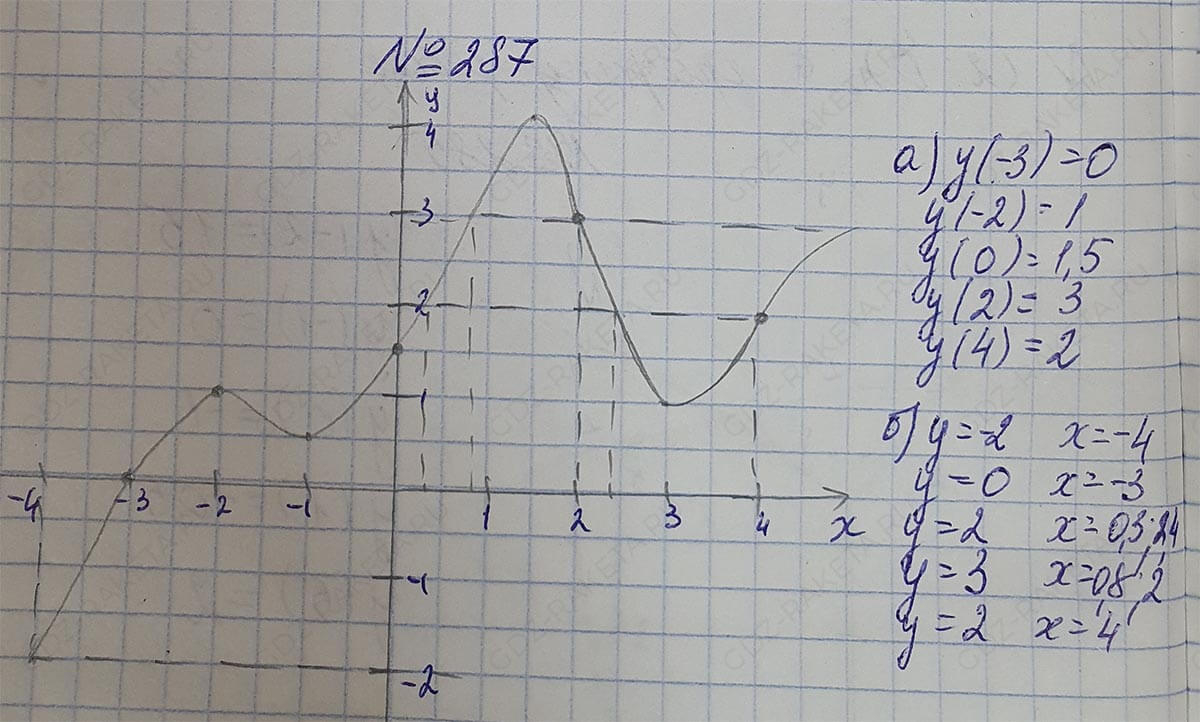 № 287
y
4
3
2
1
-4 -3 -2 -1 1 2 3 4 x
-1
-2
а) y(-3) = 0
y(-2) = 1
y(0) = 1,5
y(2) = 3
y(4) = 2
б) y = -2 x = -4
y = 0 x = -3
y = 2 x = 0,3; 2,4
y = 3 x = 0,8; 2
y = 2 x = 4
GDZ-RAKETA.RU